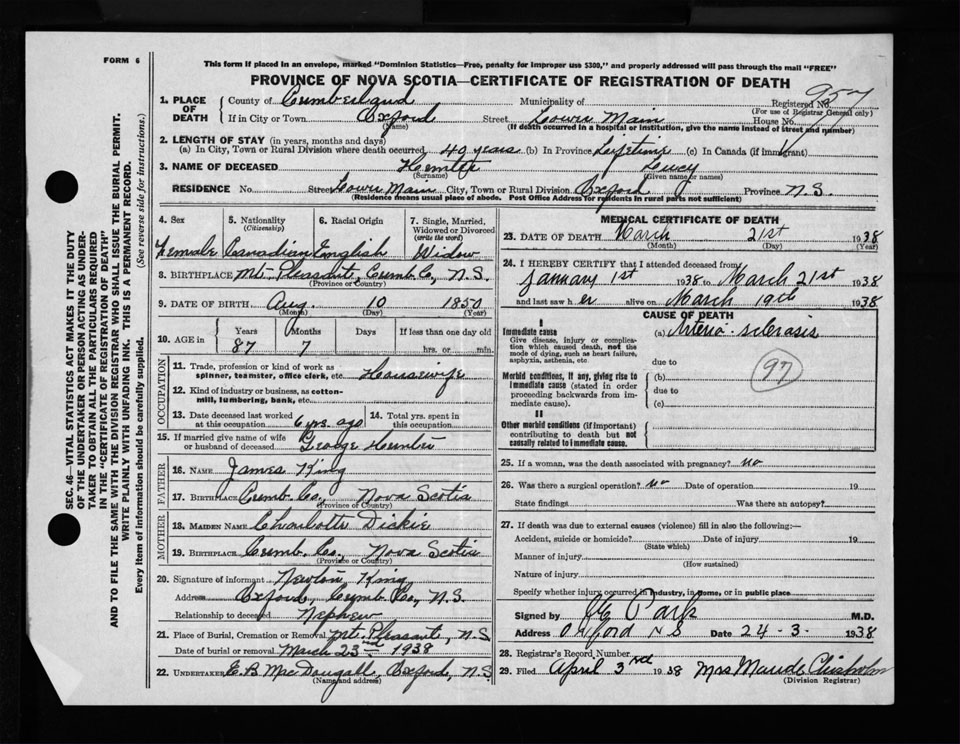 FORM 6
This form if placed in an envelope, marked "Dominion Statistics—Free, penalty for improper use $300," and properly addressed will pass through the mail "FREE"
PROVINCE OF NOVA SCOTIA—CERTIFICATE OF REGISTRATION OF DEATH
SEC. 46—VITAL STATISTICS ACT MAKES IT THE DUTY
OF THE UNDERTAKER OR PERSON ACTING AS UNDER-
TAKER TO OBTAIN ALL THE PARTICULARS REQUIRED
IN THE "CERTIFICATE OF REGISTRATION OF DEATH"
AND TO FILE THE SAME WITH THE DIVISION REGISTRAR WHO SHALL ISSUE THE BURIAL PERMIT.
WRITE PLAINLY WITH UNFADING INK. THIS IS A PERMANENT RECORD.
Every item of information should be carefully supplied. (See reverse side for instructions.)
1. PLACE OF DEATH County of Cumberland Municipality of Registered No. 957
(For use of Registrar General only)
If in City or Town Oxford Street Lower Main House No.
(Name) (If death occurred in a hospital or institution, give the name instead of street and number)
2. LENGTH OF STAY (in years, months and days)
(a) In City, Town or Rural Division where death occurred 40 years (b) In Province Lifetime (c) In Canada (if immigrant)
3. NAME OF DECEASED Hunter Lucy
(Surname) (Given name or names)
RESIDENCE No. Street Lower Main City, Town or Rural Division Oxford Province N.S.
(Residence means usual place of abode. Post Office Address for residents in rural parts not sufficient)
4. Sex 5. Nationality (Citizenship) 6. Racial Origin 7. Single, Married, Widowed or Divorced (write the word)
Female Canadian English Widow
8. BIRTHPLACE Mt. Pleasant, Cumb. Co., N.S.
(Province or Country)
9. DATE OF BIRTH Aug. 10 1850
(Month) (Day) (Year)
10. AGE in Years Months Days If less than one day old
87 7 hrs. or min.
OCCUPATION
11. Trade, profession or kind of work as spinner, teamster, office clerk, etc. Housewife
12. Kind of industry or business, as cotton-mill, lumbering, bank, etc.
13. Date deceased last worked at this occupation 6 yrs. ago 14. Total yrs. spent in this occupation
15. If married give name of wife or husband of deceased George Hunter
FATHER
16. NAME James King
17. BIRTHPLACE Cumb. Co., Nova Scotia
(Province or Country)
MOTHER
18. MAIDEN NAME Charlotte Dickie
19. BIRTHPLACE Cumb. Co., Nova Scotia
(Province or Country)
20. Signature of informant Newton King
Address Oxford, Cumb. Co., N.S.
Relationship to deceased Nephew
21. Place of Burial, Cremation or Removal Mt. Pleasant, N.S
Date of burial or removal March 23rd 1938
22. UNDERTAKER E.B. MacDougall, Oxford, N.S.
(Name and address)
MEDICAL CERTIFICATE OF DEATH
23. DATE OF DEATH March 21st 1938
(Month) (Day) (Year)
24. I HEREBY CERTIFY that I attended deceased from
January 1st 1938 to March 21st 1938
and last saw her alive on March 19th 1938
CAUSE OF DEATH
I
Immediate cause (a) Arterio-sclerosis
Give disease, injury or complication which caused death, not the mode of dying, such as heart failure, asphyxia, asthenia, etc
due to
Morbid conditions, if any, giving rise to immediate cause (stated in order proceeding backwards from immediate cause).
(b) 97
due to
(c)
II
Other morbid conditions (if important) contributing to death but not causally related to immediate cause.
25. If a woman, was the death associated with pregnancy? no
26. Was there a surgical operation? no Date of operation 19
State findings Was there an autopsy?
27. If death was due to external causes (violence) fill in also the following:—
Accident, suicide or homicide? Date of injury 19
(State which)
Manner of injury
(How sustained)
Nature of injury
Specify whether injury occurred in industry, in home, or in public place
Signed by Park M.D.
Address Oxford NS Date 24-3- 1938
28. Registrar's Record Number
29. Filed April 3rd 1938 Mrs Maude Chisholm
(Division Registrar)